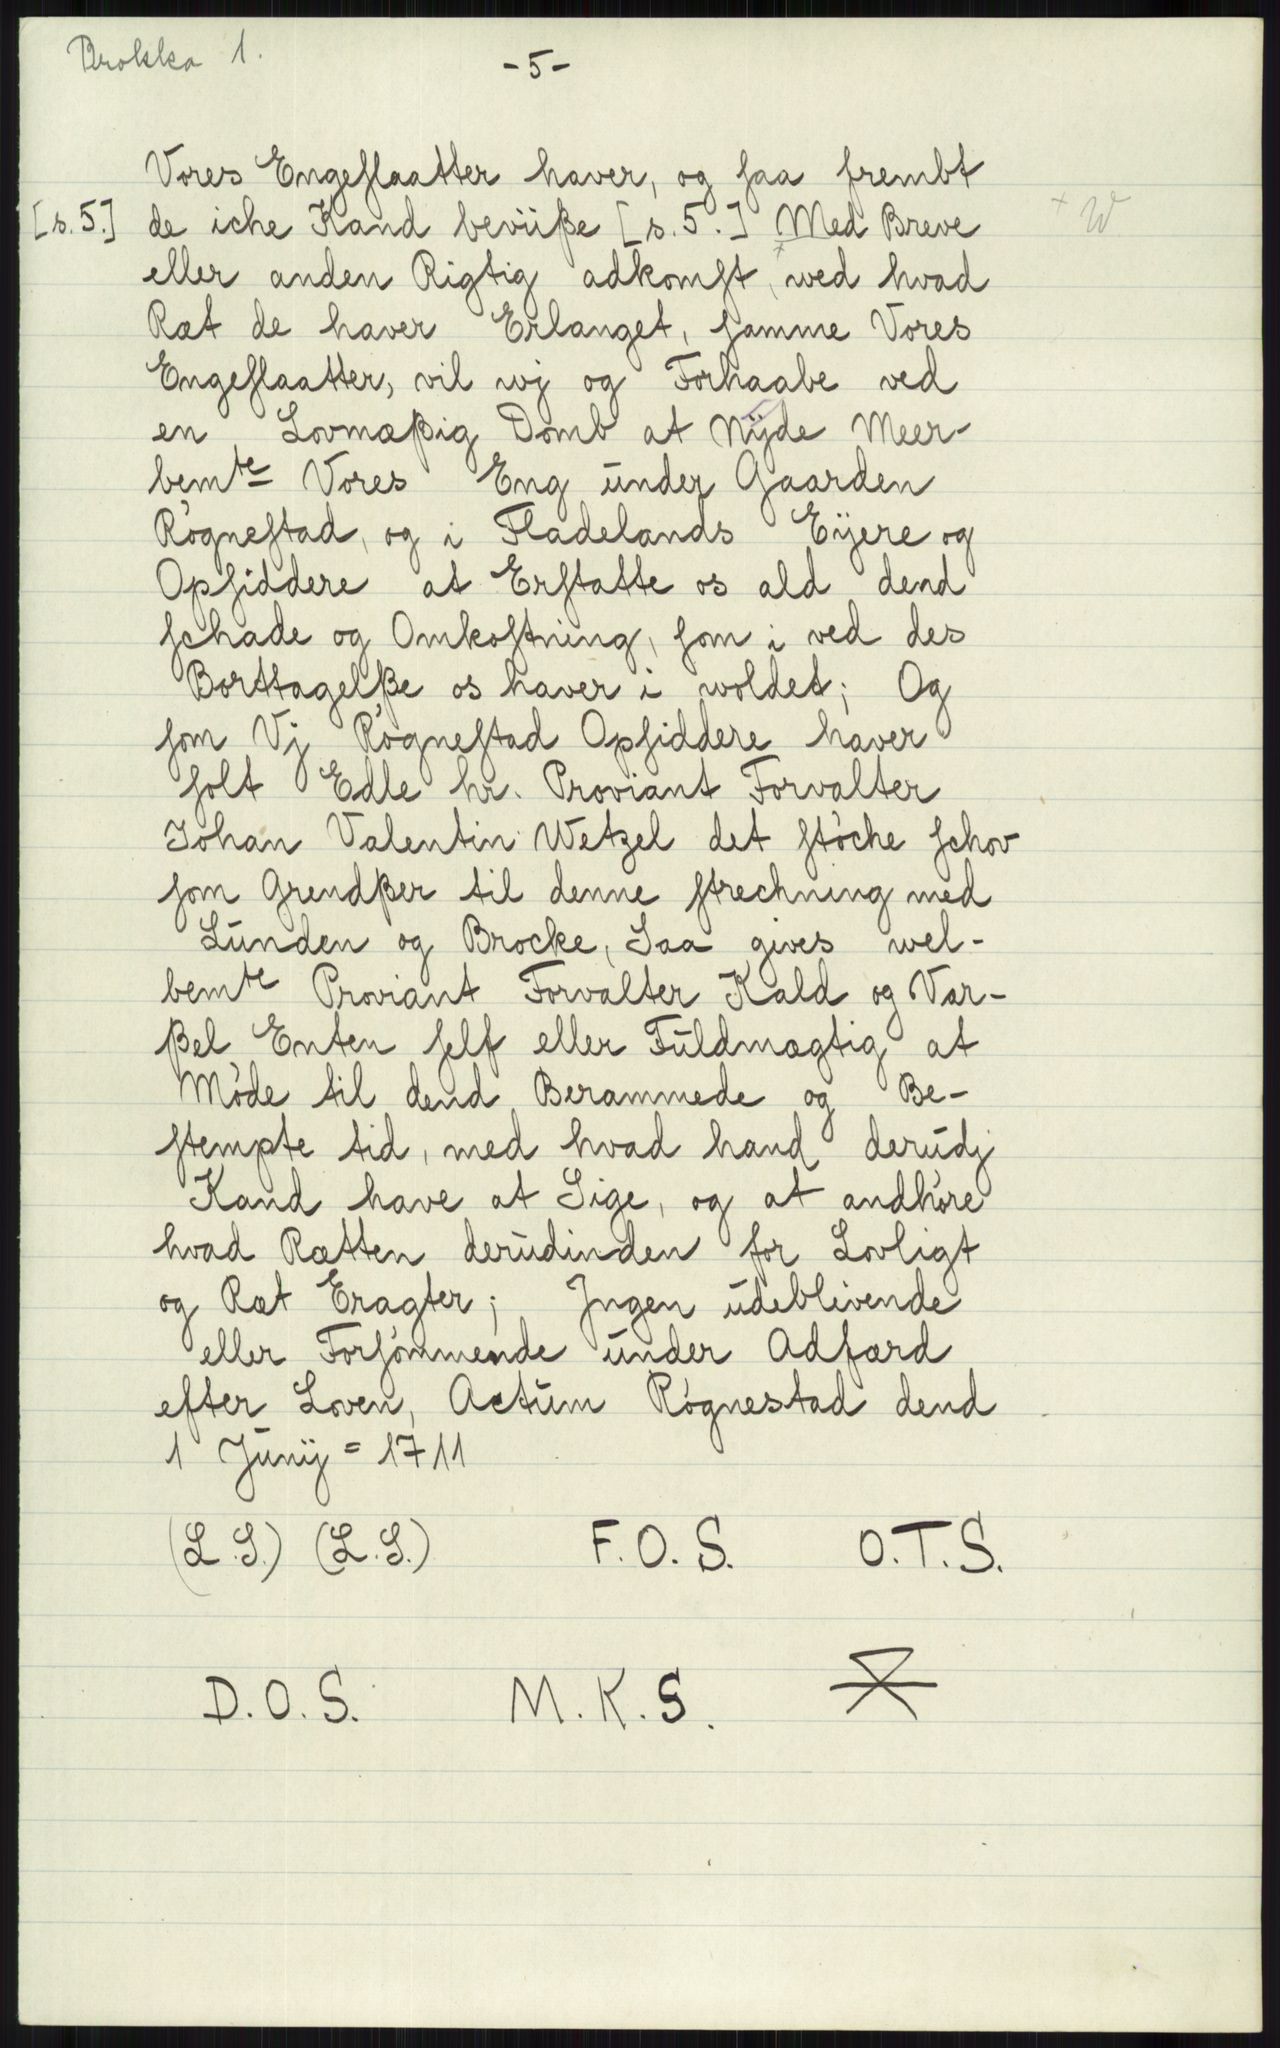 Brokka 1.
-5-
Vores Engeslaatter haver, og saa frembt
[s.5.] de iche Kand beviiße [s.5.] Med Breve + W
eller anden Rigtig adkomst, + wed hvad
Ræt de haver Erlanget, samme Vores
Engeslaatter, vil wj og Forhaabe ved
en Lovmæßig Domb at Nÿde Meer-
bemte Vores Eng under Gaarden
Røgnestad, og i Fladelands Eÿere og
Opsiddere at Erstatte os ald dend
schade og Omkostning, som i ved des
Borttagelße os haver i woldet; Og
som Vj Røgnestad Opsiddere haver
solt Edle hr. Proviant Forvalter
Johan Valentin Wetzel det støche schov
som Grendßer til denne strechning med
Lunden og Brocke, Saa gives wel-
bemte Proviant Forvalter Kald og Var-
ßel Enten self eller Fuldmægtig at
Møde til dend Berammede og Be-
stempte tid, med hvad hand derudj
Kand have at Sige, og at andhøre
hvad Rætten derudinden for Lovligt
og Ræt Eragter; Jngen udeblivende
eller Forsømmende under Adfærd
efter Loven, Actum Røgnestad dend
1 Junÿ = 1711
(L.S.) (L.S.) F.O.S. O.T.S.
D.O.S. M.K.S.